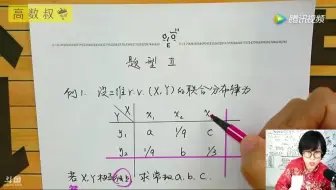 高数叔
腾讯视频
题型 Ⅱ
例1. 设二维 r.v. (X,Y) 的联合分布律为
Y X x₁ x₂
y₁ a 1/9 c
y₂ 1/9 b 1/3
若 X,Y 相互独立, 求常数 a.b.c.
斗鱼